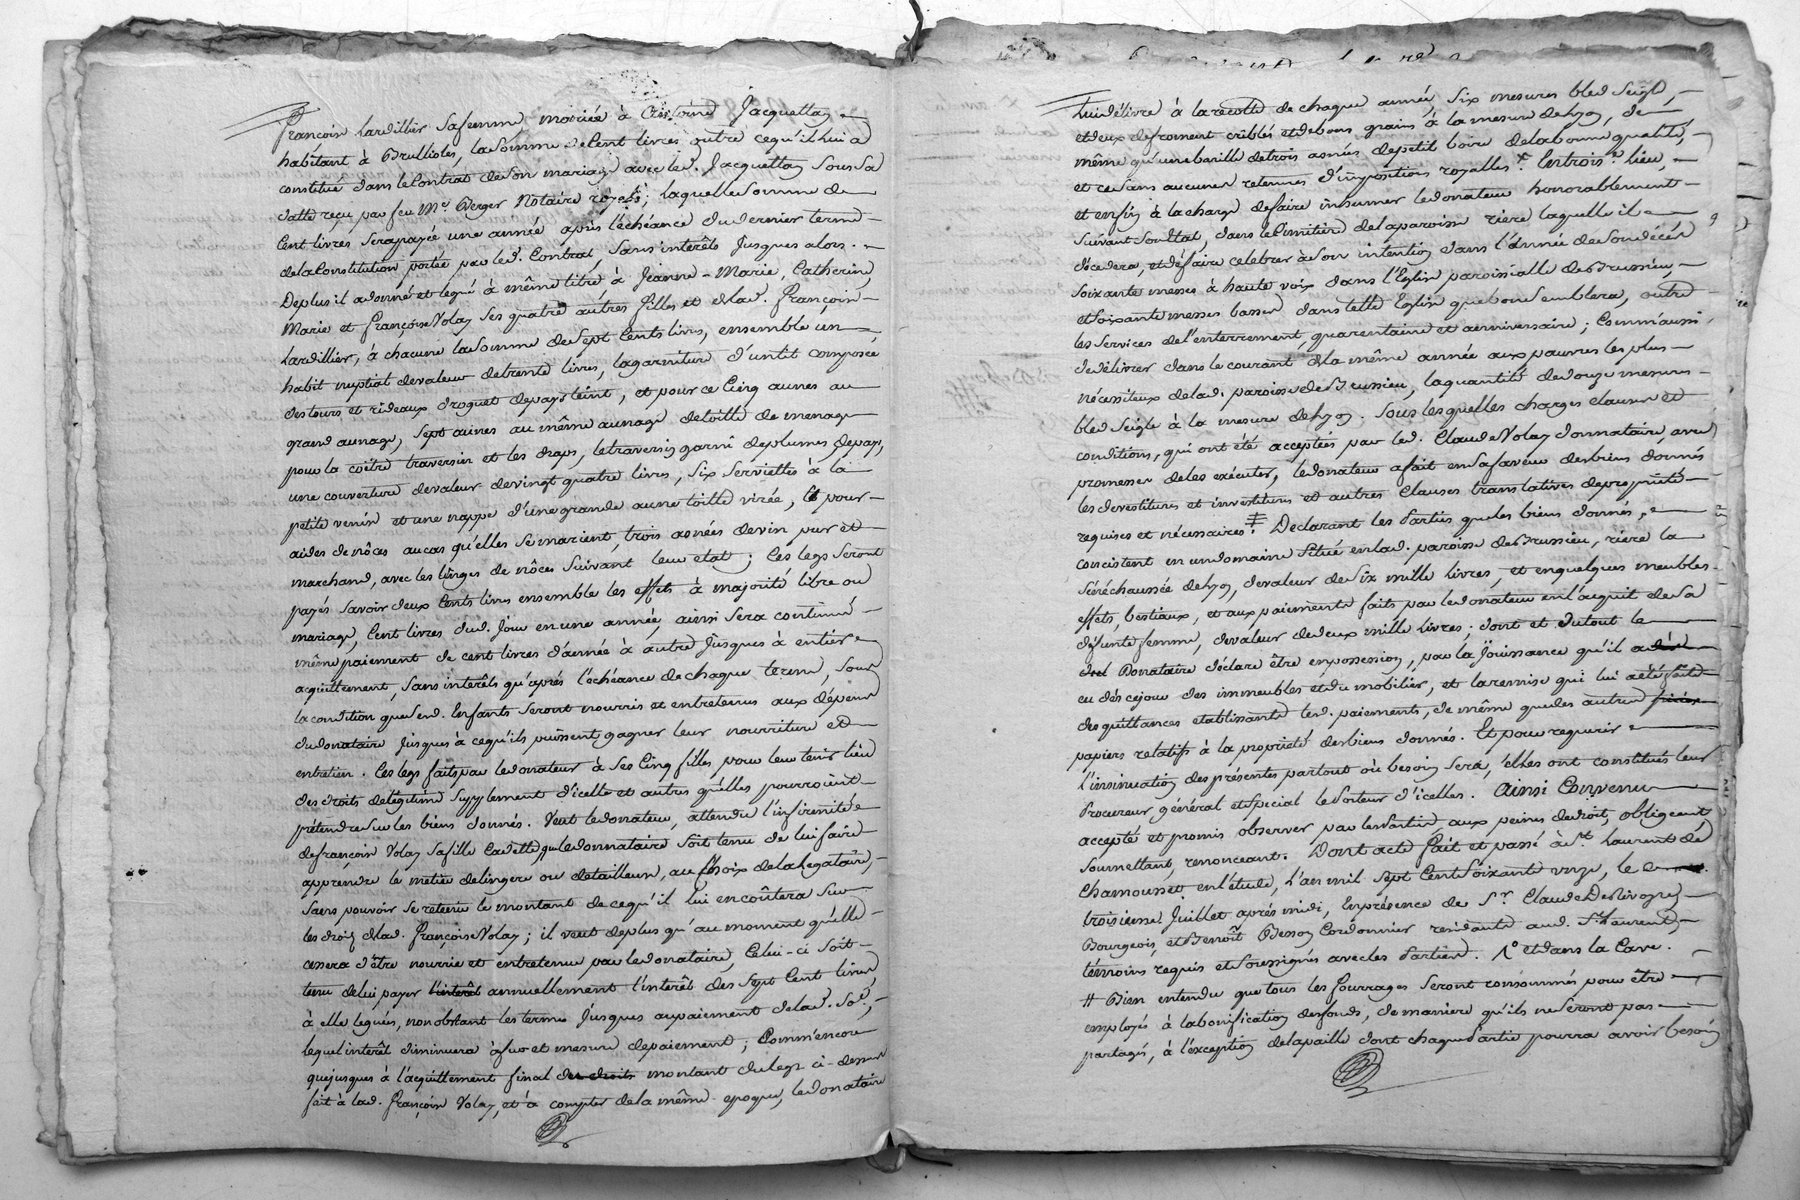 françoise Lardillier Safemme, mariée à Antoine Jacquettay
habitant à Brullioles, lasomme decent livres outre cequ'il lui a
constitué dans leContrat deson mariage avec led. Jacquettay Soussa
datte reçu par feu Me. Berger Notaire royal; laquelle somme de
Cent livres Serapayée une année après l'échéance du dernier terme
delaConstitution portée par led. Contrat, Sans intérêts Jusques alors.
Deplus il adonné et legué à mêmetitre à Jeanne-Marie, Catherine,
Marie et françoiseVolay Ses quatre autres filles et delad. françoise
Lardillier, à chacune lasomme deSept Cents livres, ensemble un
habit nuptial devaleur detrente livres, lagarniture d'unlit composée
destours et rideaux droguet depays teint, et pour ce Cinq aunes au
grand aunage, Sept aunes au même aunage detoille de menage
pour la coëtre traversier et les draps, letraversin garni deplumes depays,
une couverture devaleur devingt quatre livres, Six Serviettes à la
petite venise et une nappe d'une grande aune toille virée, et pour
aides de nôces aucas qu'elles Semarient, trois asnées devin pur et
marchand, avec les linges de nôces Suivant leur etat; Ces legs Seront
payés Savoir deux Cents livres ensemble les effets à majorité libre ou
mariage, Cent livres dud. Jour en une année, ainsi Sera continué
même paiement de cent livres d'année à autre Jusques à entier
aquittement, Sans intérêts qu'après l'échéance de chaque terme, Sous
la condition quelesd. Enfants Seront nourris et entretenus aux dépens
dudonataire Jusques à cequ'ils puissent gagner leur nourriture et
entretien. Ces legs faits par ledonateur à Ses Cinq filles pour leur tenir lieu
des droits delégitime Supplement d'icelle et autres qu'elles pourroient
prétendre Sur les biens donnés. Veut ledonateur, attendu l'infirmité
defrançoise Volay Safille Cadette, que ledonnataire Soit tenu de lui faire
apprendre le métier delingere ou detailleur, au Choix delalegataire,
Sans pouvoir Se retenir le montant de cequ'il lui encoûtera Sur
les droits delad. françoiseVolay; il veut deplus qu'au moment qu'elle
cessera d'être nourrie et entretenue par ledonataire, Celui-ci Soit
tenu delui payer l'intérêt annuellement l'intérêt des Sept Cent livres
à elle legués, nonobstant les termes Jusques aupaiement delad. Soe.,
lequel intérêt diminuera àfur et mesure depaiement; Comm'encore
quejusques à l'acquittement final des droits montant dulegs ci-dessus
fait à lad. françoise Volay, et à compter dela même epoque, ledonataire
Luidélivre à larécolte de chaque année, Six mesures bled Seigle,
etdeux defroment criblés etdebons grains à la mesure deLyon, de
même qu'unebarille detrois asnées depetit boire delabonne qualité,
et ce Sans aucunes retenues d'impositions royalles. Centrois. lieu,
et enfin à la charge defaire inhumer ledonateur honorablement
Suivant Son Etat, dans leCimitiere delaparoisse riere laquelle il
décedera, etdefaire celebrer àSon intention dans l'Année deSondécès
Soixante messes à haute voix dans l'Eglise paroissialle deBrussieu,
etSoixante messes basses dans telle Eglise quebonSemblera, outre
les Services del'enterrement, quarentaine et anniversaire; Comm'aussi
dedélivrer dans le courant dela même année aux pauvres les plus
nécessiteux delad. paroisse deBrussieu, laquantité dedouze mesures
bled Seigle à la mesure deLyon. Sous lesquelles charges clauses et
conditions, qui ont été acceptées par led. ClaudeVolay donnataire, avec
promesse deles exécuter, ledonateur afait enSafaveur desbiens donnés
les devestitures et investitures et autres Clauses translatives depropriété
requises et nécessaires. Declarant les Parties queles biens donnés,
consistent en undomaine Situé enlad. paroisse deBrussieu, riere la
Sénéchaussée deLyon, devaleur deSix mille livres, et enquelques meubles
effets, bestiaux, et aux paiements faits par ledonateur enl'acquit de Sa
défunte femme, devaleur dedeux mille livres; dont et dutout le
dud Donataire déclare être enpossession, par la Jouissance qu'il a
eu dès cejour des immeubles etdu mobilier, et laremise qui lui aété faite
desquittances etablissants lesd. paiements, de même quedes autres
papiers relatifs à la propriété desbiens donnés. Et pour requerir
l'insinuation desprésentes partout où besoin Sera, elles ont constitués leur
Procureur général etSpécial le Porteur d'icelles. Ainsi Convenu
accepté et promis observer par lesParties aux peines dedroit, obligeant
Soumettant, renonceant. Dont acte fait et passé à St. Laurent de
Chamousset en l'étude, L'an mil Sept CentSoixante onze, le
troisieme Juillet après midi, Enprésence de Sr. Claude
Bourgeois, etBenoît Besson Cordonnier residants aud. St Laurent
témoins requis etSoussignés aveclés Parties. 1° et dans la Cave.
# Bien entendu que tous les fourrages Seront consommés pour être
employés à labonification desfonds, de maniere qu'ils neSeront pas
partagés, à l'exception delapaille dont chaquePartie pourra avoir besoin